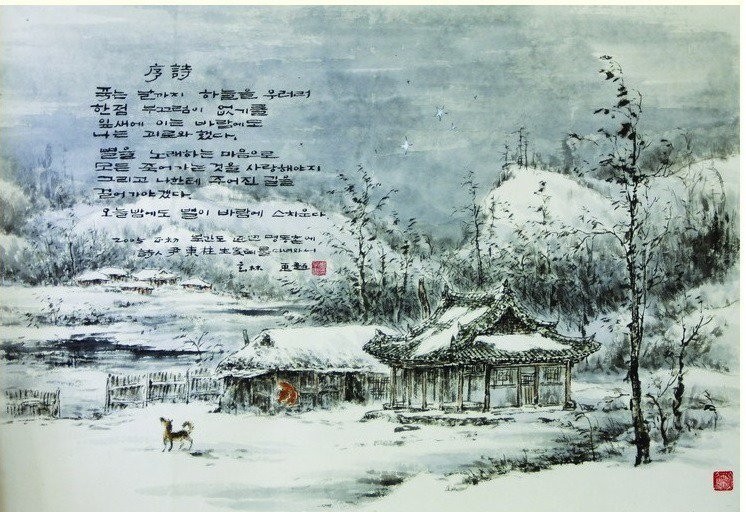 序詩
죽는 날까지 하늘을 우러러
한점 부끄럼이 없기를
잎새에 이는 바람에도
나는 괴로와 했다.
별을 노래하는 마음으로
모든 죽어가는 것을 사랑해야지
그리고 나한테 주어진 길을
걸어가야겠다.
오늘밤에도 별이 바람에 스치운다
북간도 명동촌에
詩人 尹東柱生家를